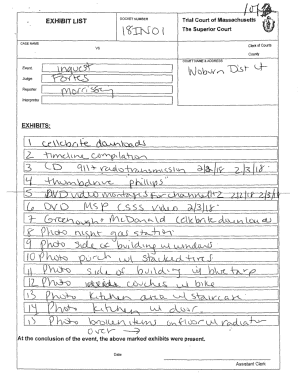 EXHIBIT LIST
DOCKET NUMBER
18IN01
Trial Court of Massachusetts
The Superior Court
CASE NAME
VS
Clerk of Courts
County
Event
inquest
Judge
Reporter
Morrissey
Interpreter
COURT NAME & ADDRESS
Woburn Dist Ct
EXHIBITS:
1 cellebrite downloads
2 timeline compilation
3 CD 911 + radio transmission 2/3/18
4 thumbdrive "phillips"
5 DVD video montages for channels 2/2/18 2/3/18
6 DVD MSP CSSS video 2/3/18
7 Greenough + McDonald cellebrite downloads
8 Photo night gas station
9 Photo side of building w/ windows
10 Photo porch w/ stacked tires
11 Photo side of building w/ blue tarp
12 Photo couches w/ bike
13 Photo kitchen area w/ staircase
14 Photo kitchen w/ door
15 Photo broken items on floor w/ radiator
over →
At the conclusion of the event, the above marked exhibits were present.
Date
Assistant Clerk